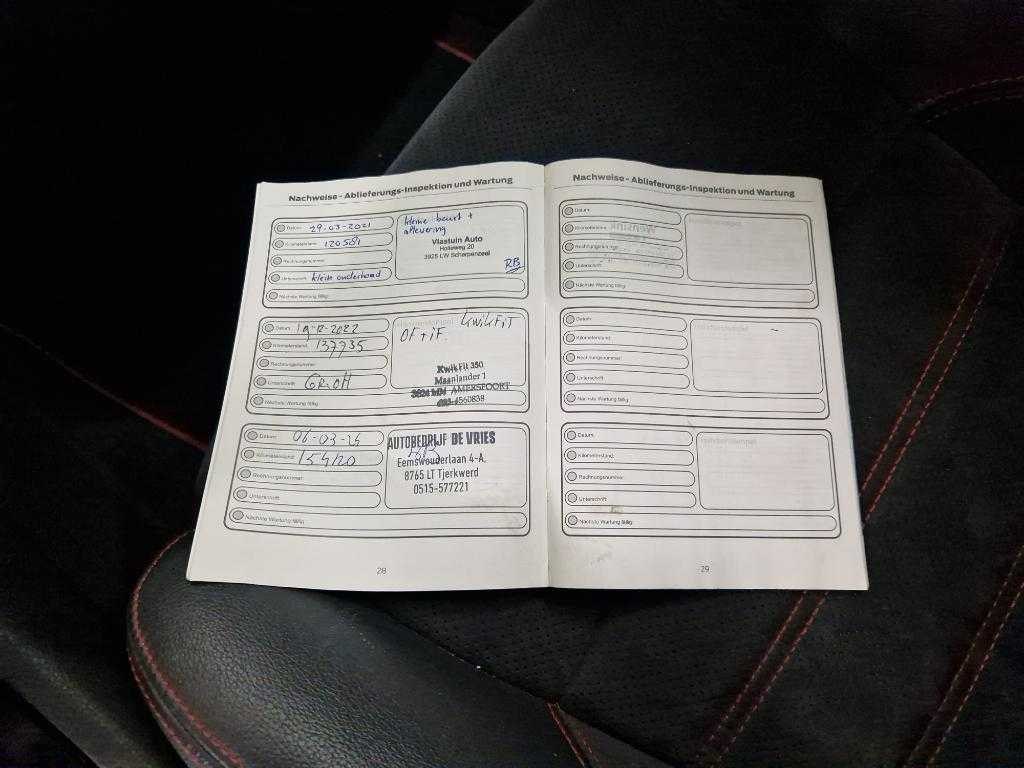 Nachweise - Ablieferungs-Inspektion und Wartung
Datum 29-03-2021
Kilometerstand 120581
Rechnungsnummer
Unterschrift klein onderhoud
Nächste Wartung fällig
kleine beurt +
aflevering
Vlastuin Auto
Holleweg 20
3925 LW Scherpenzeel
RB
Datum
Kilometerstand 137735
Rechnungsnummer
Unterschrift
Nächste Wartung fällig
KwikFiT
OF + iF.
KwikFit 350
Maanlander 1
AMERSFOORT
Datum 06-03-
Kilometerstand
Rechnungsnummer
Unterschrift
Nächste Wartung fällig
AUTOBEDRIJF DE VRIES
Eemswouderlaan 4-A.
8765 LT Tjerkwerd
0515-577221
28
Nachweise - Ablieferungs-Inspektion und Wartung
Datum
Kilometerstand
Rechnungsnummer
Unterschrift
Nächste Wartung fällig
Datum
Kilometerstand
Rechnungsnummer
Unterschrift
Nächste Wartung fällig
Datum
Kilometerstand
Rechnungsnummer
Unterschrift
Nächste Wartung fällig
29